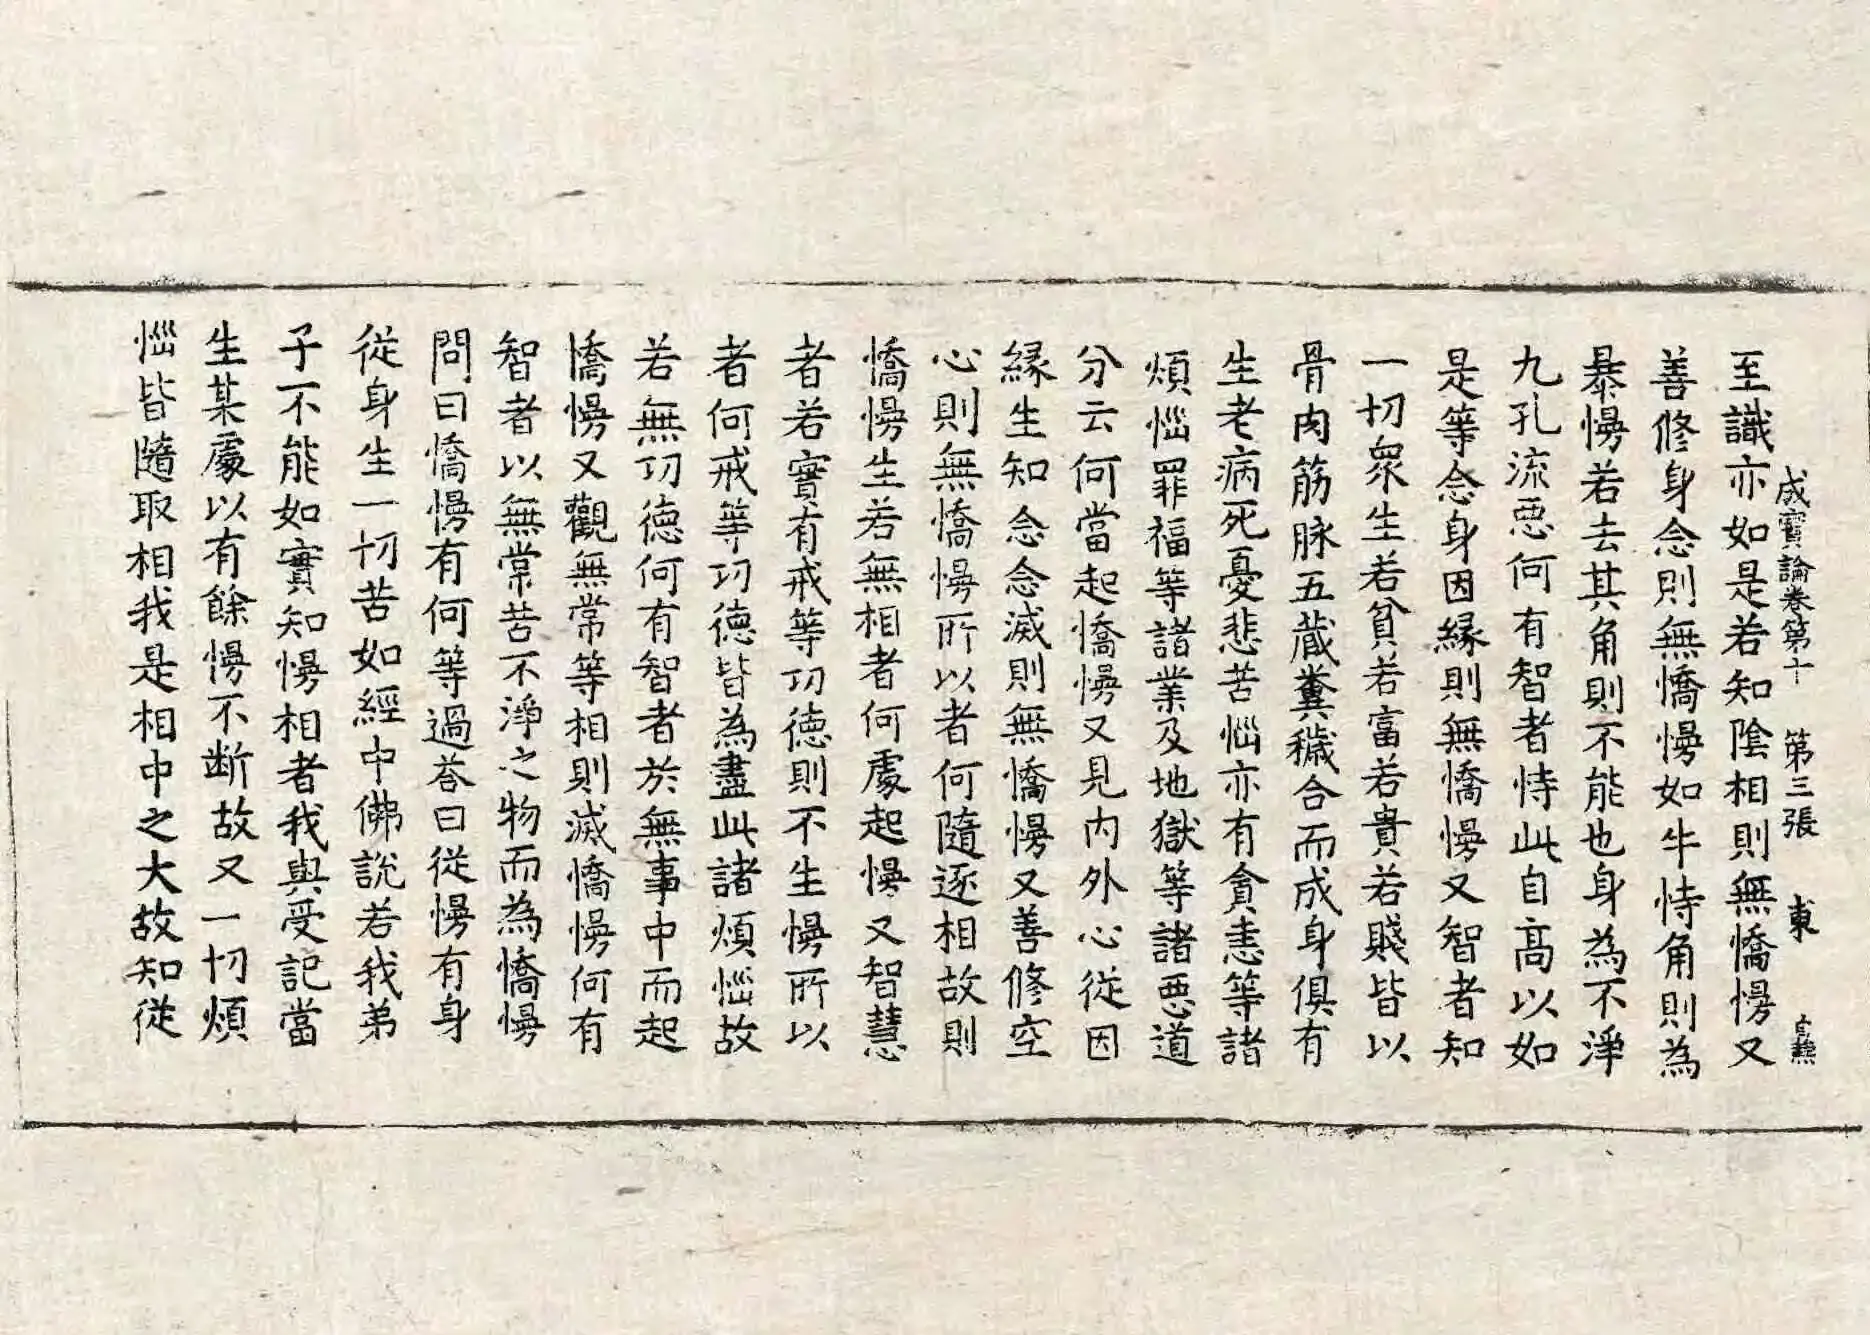 成實論卷第十 第三張 東
至識亦如是若知陰相則無憍慢又
善修身念則無憍慢如牛恃角則為
暴慢若去其角則不能也身為不淨
九孔流惡何有智者恃此自高以如
是等念身因緣則無憍慢又智者知
一切衆生若貧若富若貴若賤皆以
骨肉筋脉五藏糞穢合而成身俱有
生老病死憂悲苦惱亦有貪恚等諸
煩惱罪福等諸業及地獄等諸惡道
分云何當起憍慢又見內外心從因
緣生知念念滅則無憍慢又善修空
心則無憍慢所以者何隨逐相故則
憍慢生若無相者何處起慢又智慧
者若實有戒等功德則不生慢所以
者何戒等功德皆為盡此諸煩惱故
若無功德何有智者於無事中而起
憍慢又觀無常等相則滅憍慢何有
智者以無常苦不淨之物而為憍慢
問曰憍慢有何等過荅曰從慢有身
從身生一切苦如經中佛說若我弟
子不能如實知慢相者我與受記當
生某處以有餘慢不斷故又一切煩
惱皆隨取相我是相中之大故知從